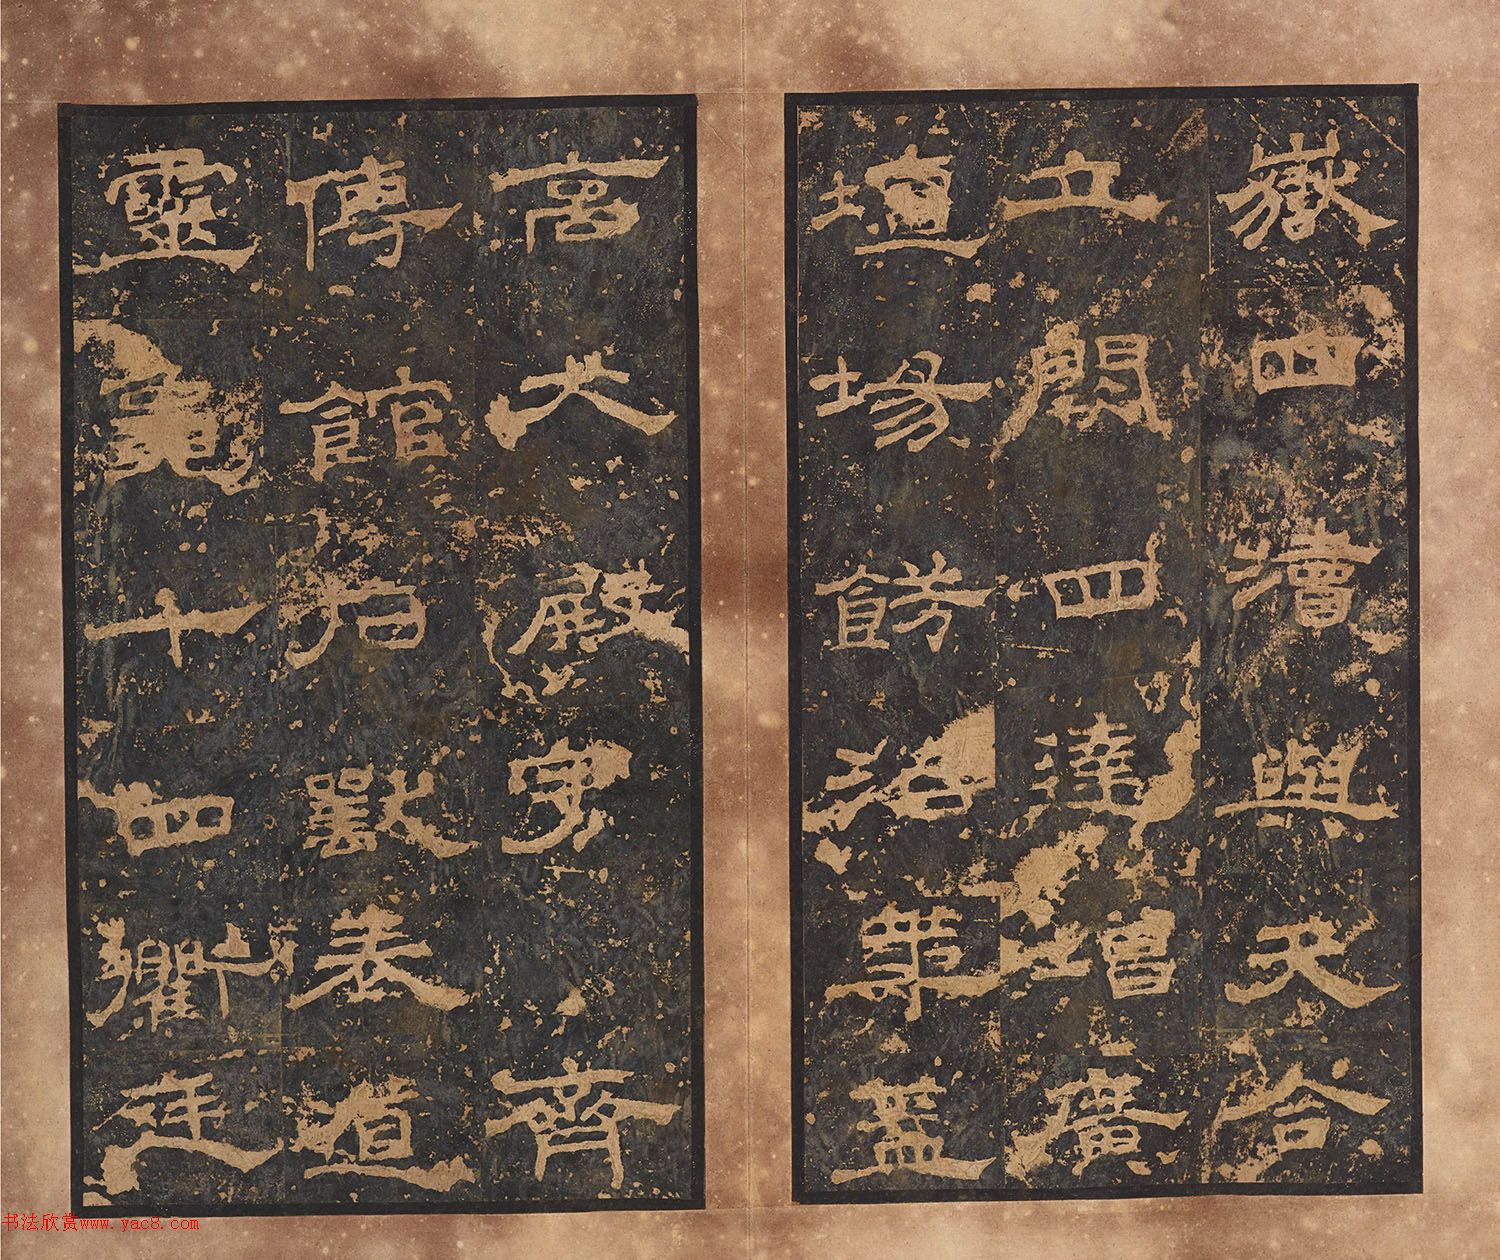 嶽四瀆與天合
立闕四達增廣
壇場餝治華蓋
高大殿宇齊
傳館石獸表道
靈龜十四衢廷
书法欣赏www.yac8.com